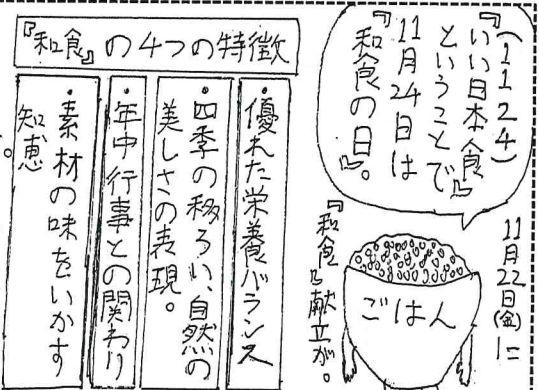 (1124)
『いい日本食』
ということで
11月24日は
『和食の日』。
11月22日(金)に
『和食』献立が。
ごはん
『和食』の4つの特徴
・優れた栄養バランス
・四季の移ろい、自然の
美しさの表現。
・年中行事との関わり
・素材の味をいかす
知恵
。